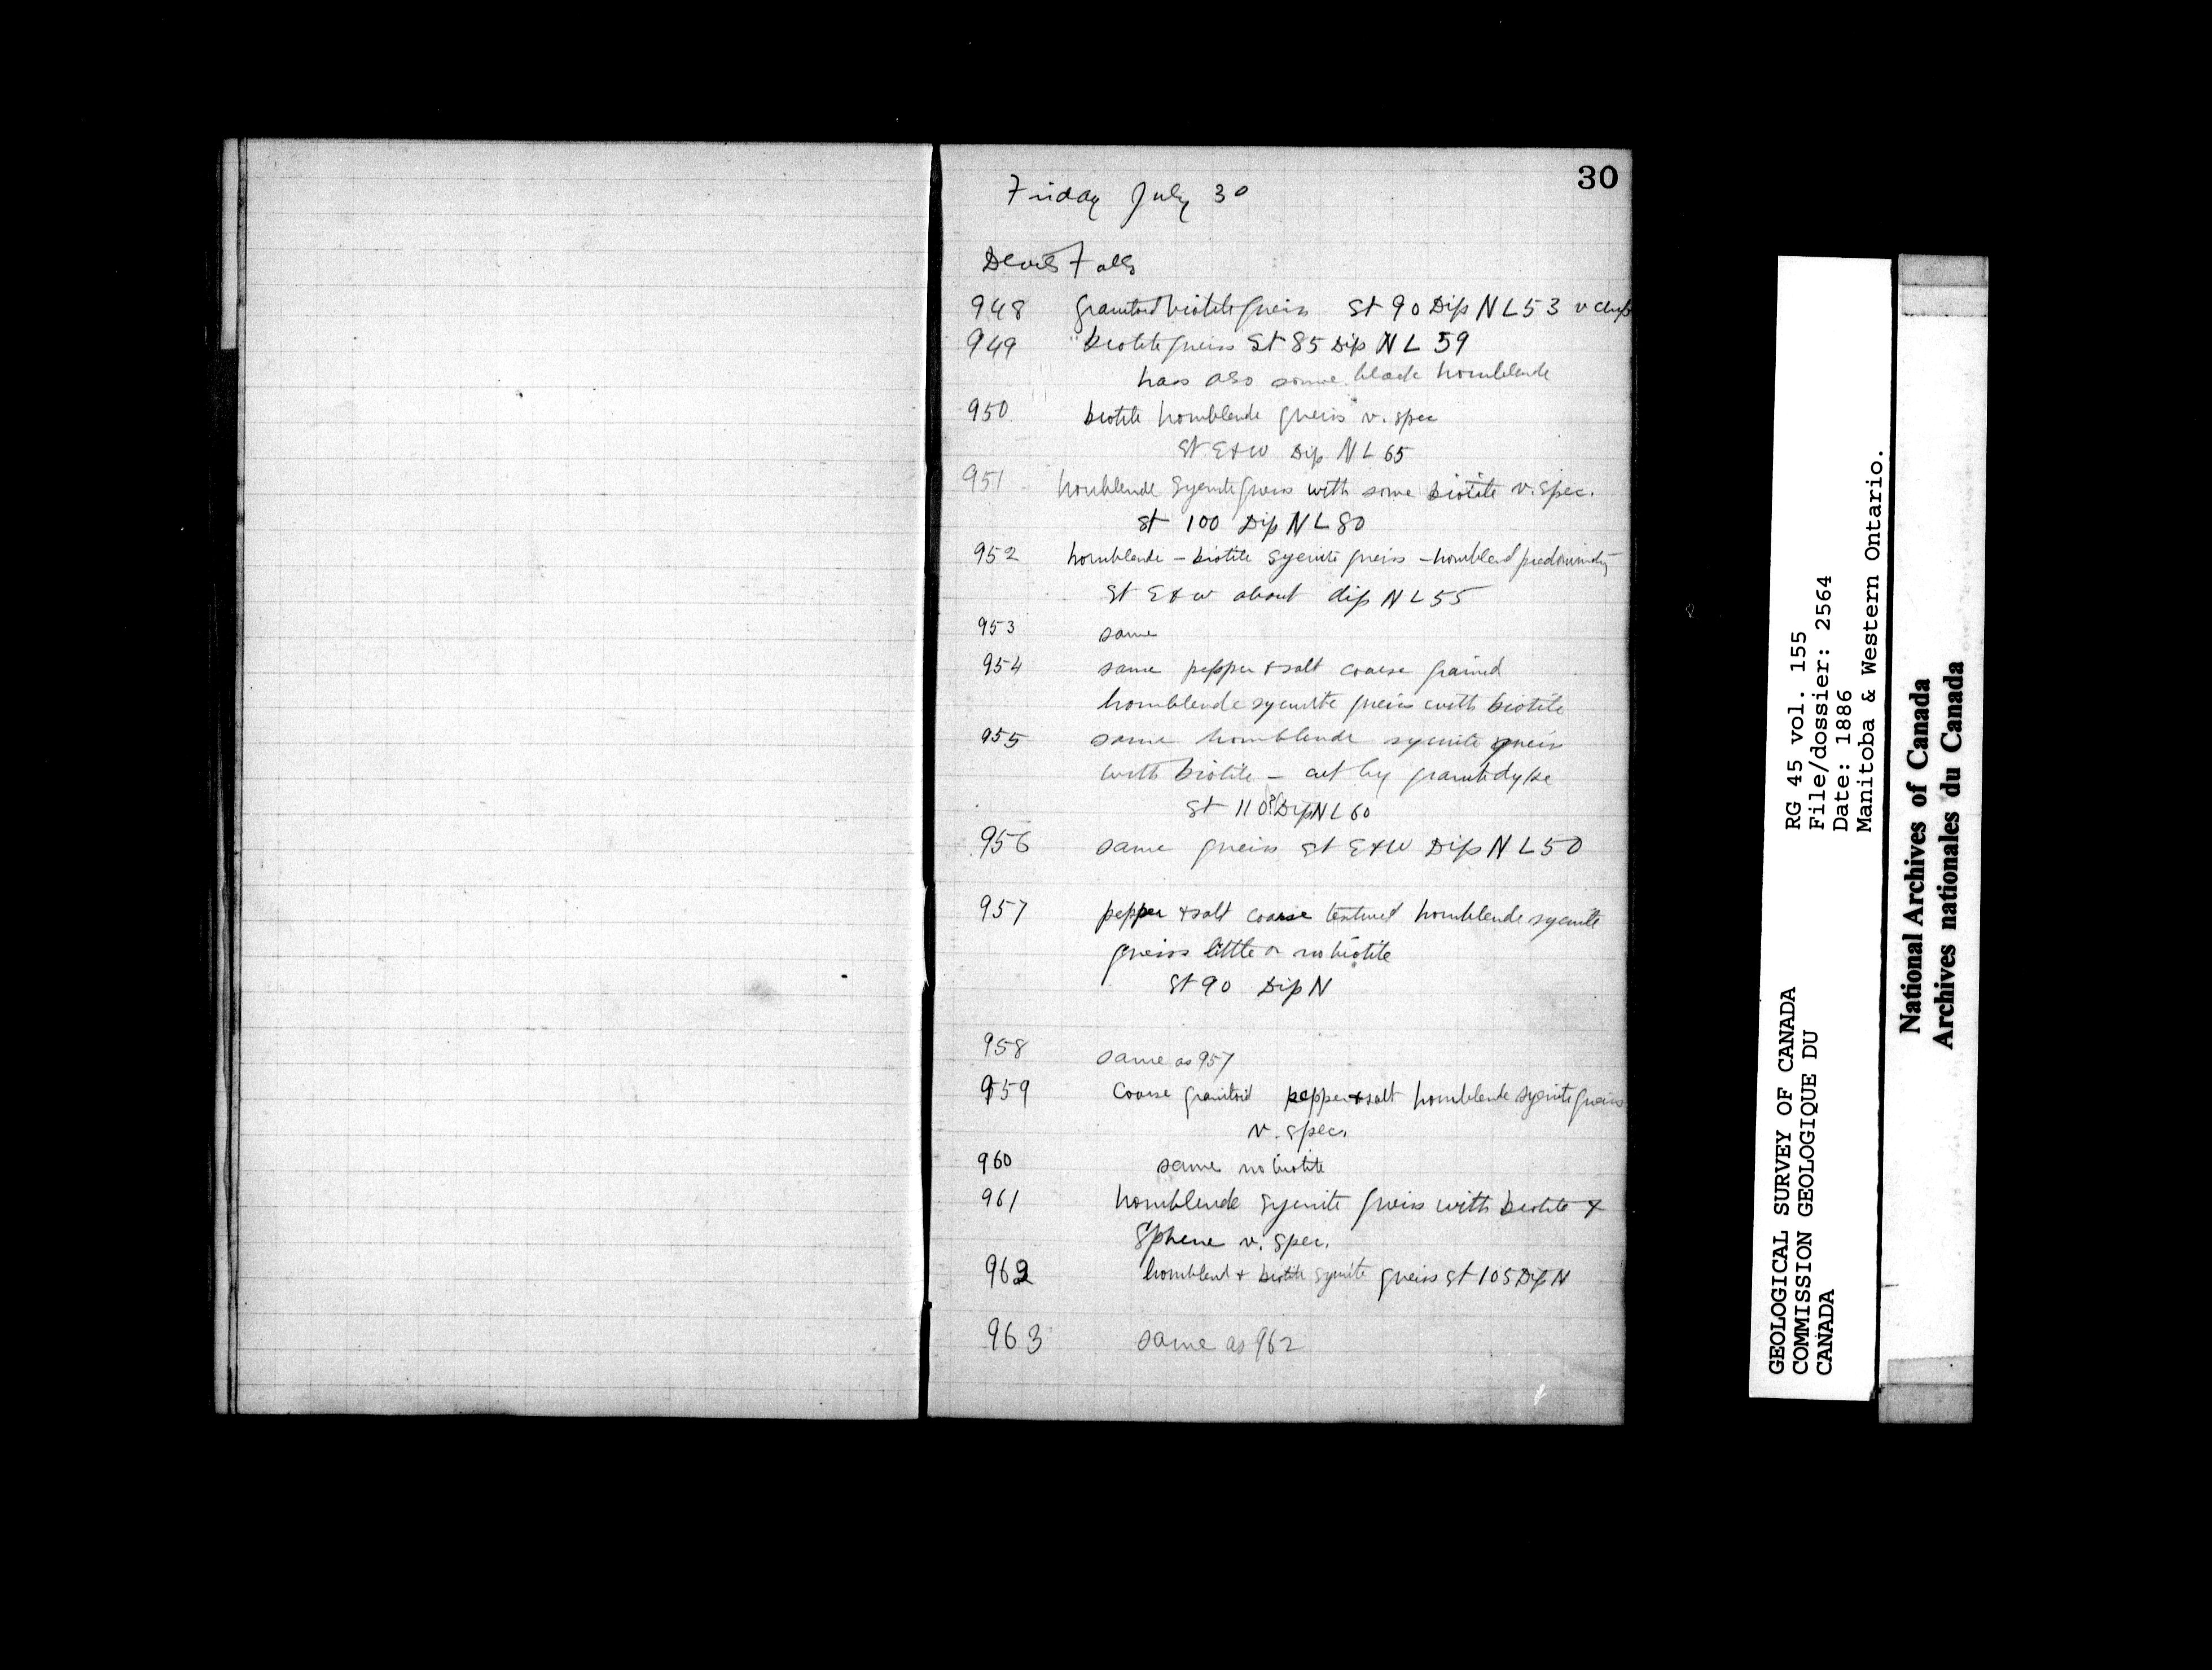 30
Friday July 30
Devils Falls
948 granitoid biotite gneiss St 90 Dip N L 53 v chip
949 biotite gneiss St 85 Dip N L 59
has also some black hornblende
950 biotite hornblende gneiss v. spec
St E & W Dip N L 65
951 hornblende Syenite gneiss with some biotite v. spec.
St 100 Dip N L 80
952 hornblende - biotite Syenite gneiss - hornblend predominatg
St E & W about dip N L 55
953 same
954 same pepper & salt coarse grained
hornblende syenite gneiss with biotite
955 same hornblende syenite gneiss
with biotite - cut by granite dyke
St 110? Dip N L 60
956 same gneiss St E & W Dip N L 50
957 pepper & salt coarse textured hornblende syenite
gneiss little or no biotite
St 90 Dip N
958 same as 957
959 Coarse granitoid pepper & salt hornblende syenite gneiss
v. spec.
960 same no biotite
961 hornblende syenite gneiss with biotite &
Sphene v. spec.
962 hornblend & biotite syenite gneiss St 105 Dip N
963 same as 962
GEOLOGICAL SURVEY OF CANADA
COMMISSION GEOLOGIQUE DU
CANADA
RG 45 vol. 155
File/dossier: 2564
Date: 1886
Manitoba & Western Ontario.
National Archives of Canada
Archives nationales du Canada